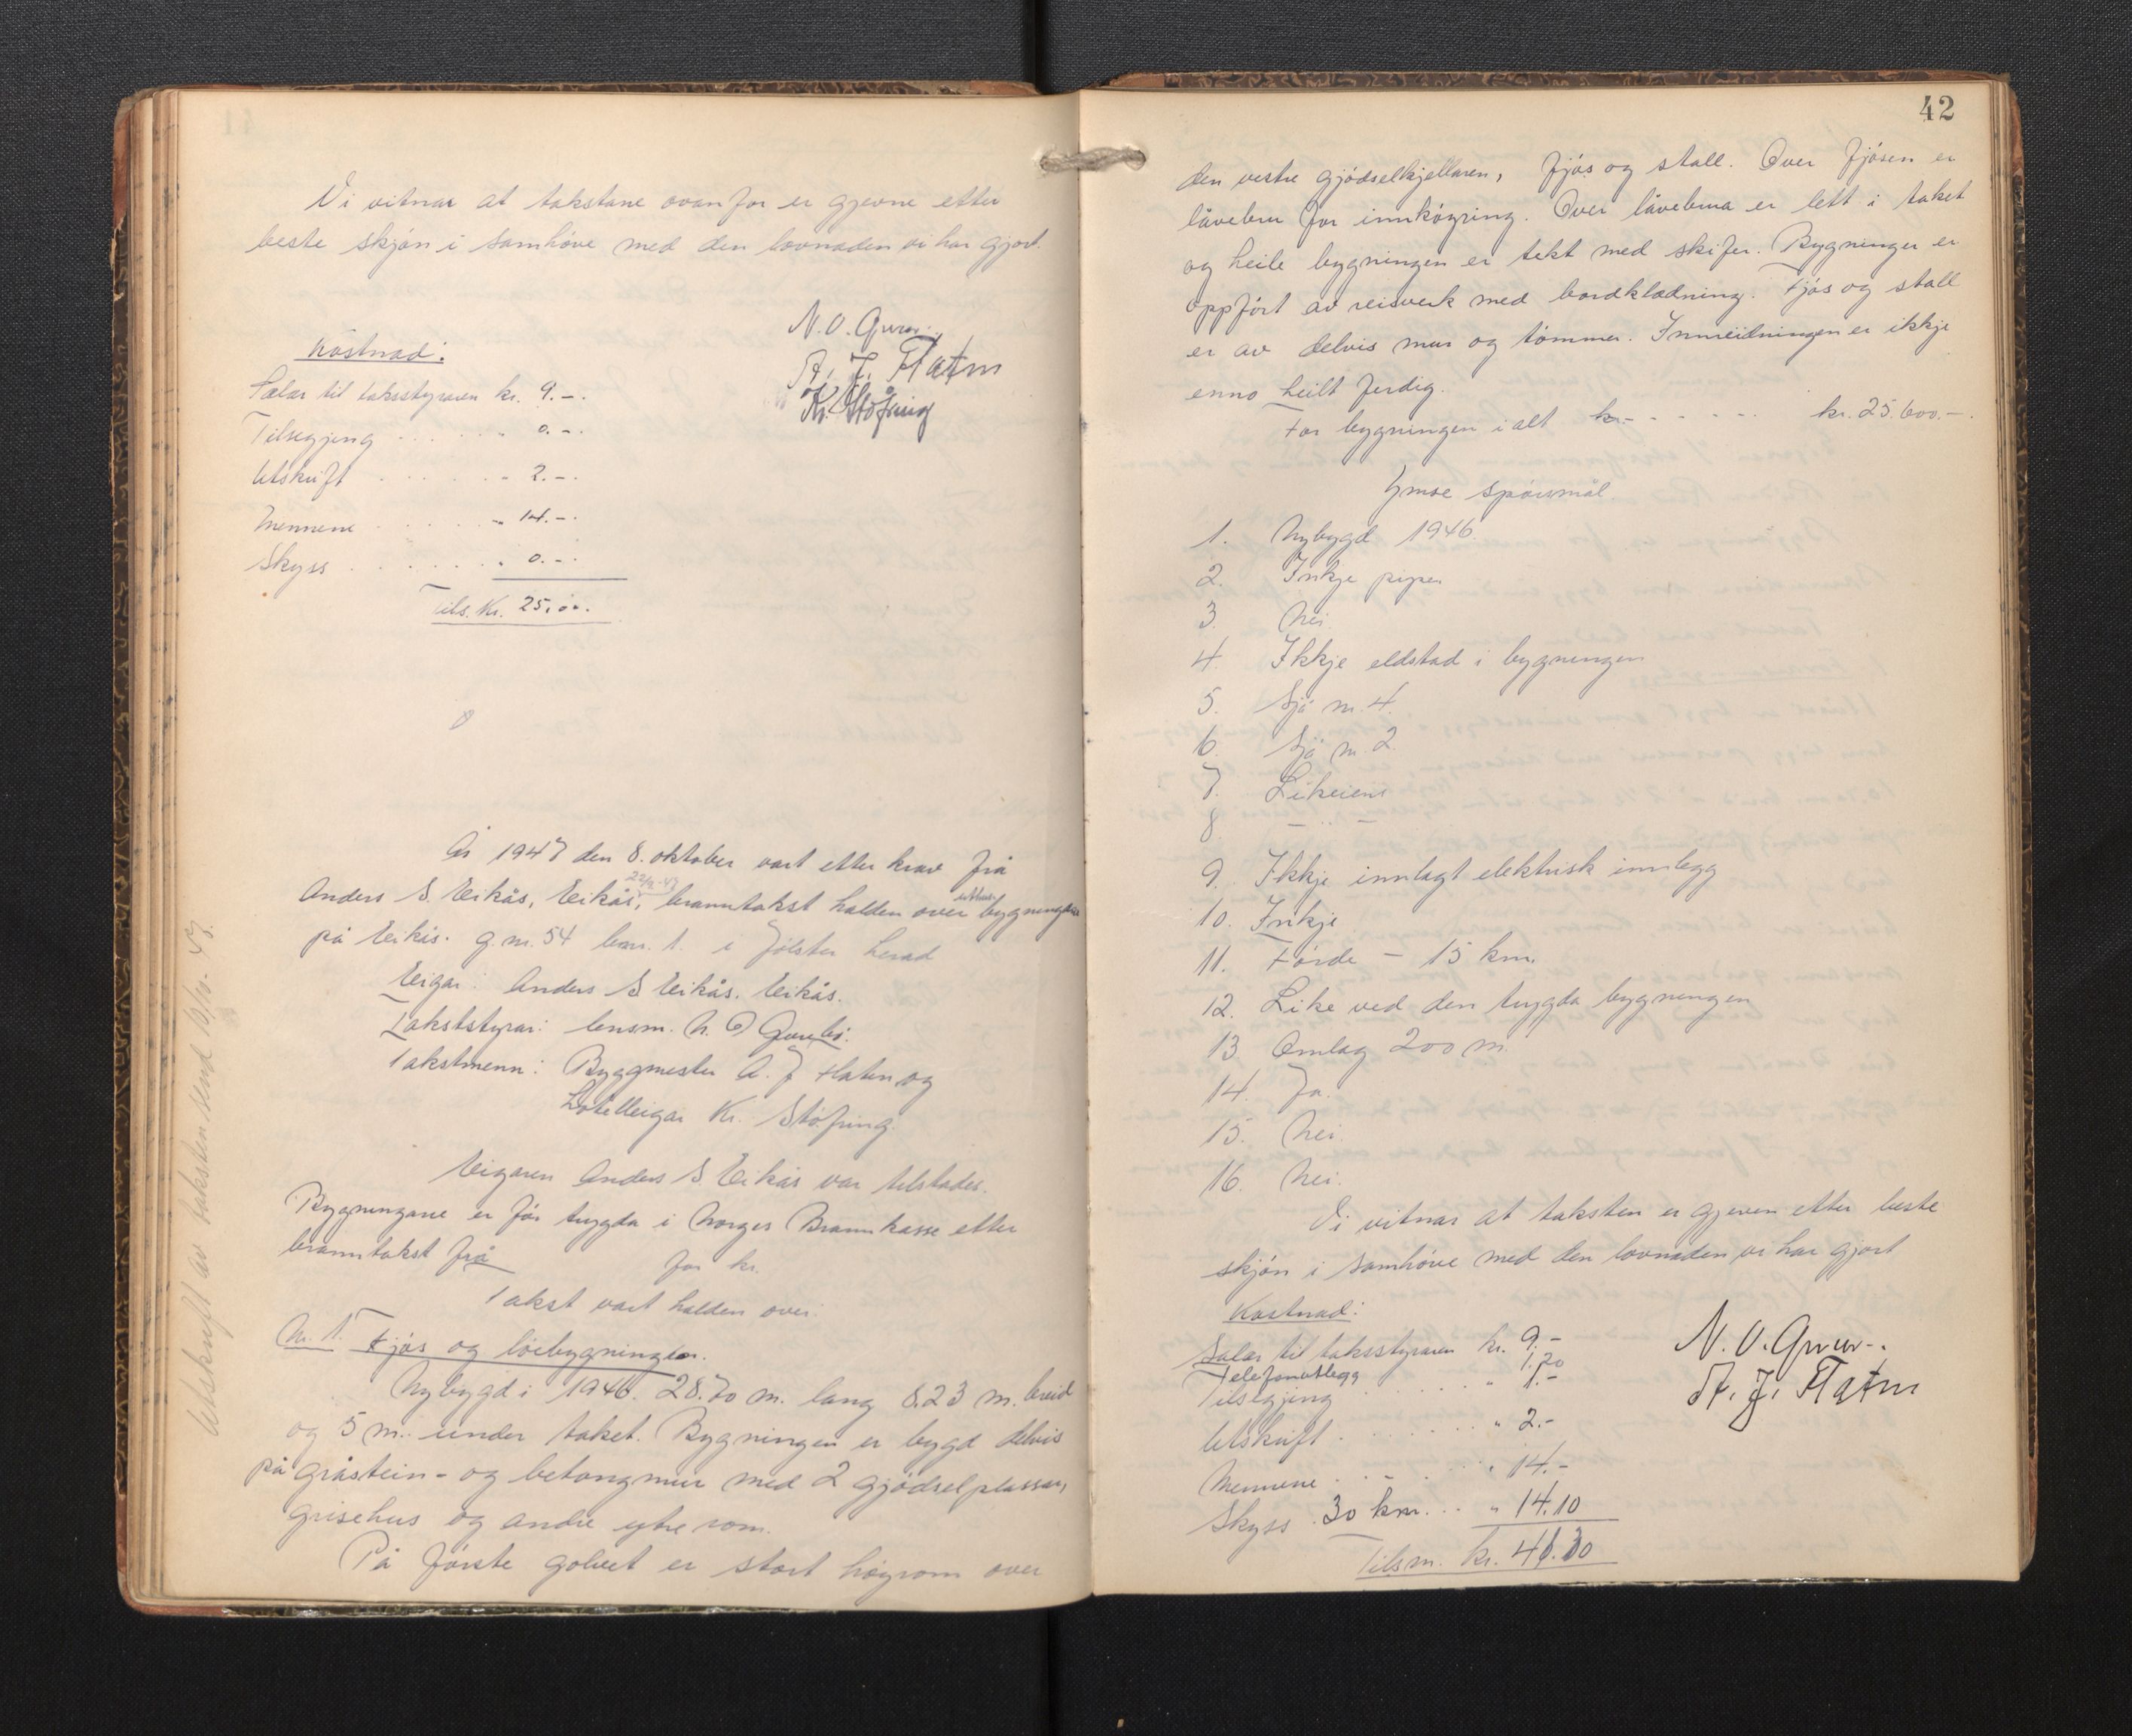 Vi vitnar at takstane ovanfor er gjevne etter
beste skjón i samhöve med den lovnaden vi har gjort.
N. O. 
A. J. Flaten
Kr. Støfring
Kostnad:
Salær til takststyraren kr. 9.-.
Tilsegjing . . . . . . " 0.-.
Utskrift . . . . . . " 2.-.
Mennene . . . . . . " 14.-.
Skyss . . . . . . " 0.-.
Tils. Kr. 25,00.
År 1947 den 8. oktober vart etter krav frå
Anders S. Eikås, Eikås, branntakst halden over bygningen
på Eikås. g.nr. 54 bnr. 1. i Jølster herad
Eigar: Anders S Eikås. Eikås.
Takststyrar: lensm. N. O
Takstmenn: Byggmester A. J Flaten og
Hotelleigar Kr. Støfring.
Eigaren Anders S Eikås var tilstades.
Bygningane er för trygda i Norges Brannkasse etter
branntakst frå for kr.
Takst vart halden over:
Nr. 1. Fjös og löebygningen.
Nybygd i 1946. 28.70 m. lang 8.23 m. breid
og 5 m. under taket. Bygningen er bygd delvis
på gråstein- og betongmur med 2 gjödselplassar,
grisehus og andre ytre rom.
På förste golvet er stort höyrom over
Utskrift av taksten send 10/10-47.
42
den vestre gjödselkjellaren, fjös og stall. Over fjösen er
låvebru for innköyring. Over låvebrua er lett i taket
og heile bygningen er tekt med skifer. Bygningen er
oppfört av reisverk med bordklædning. Fjös og stall
er av delvis mur og tömmer. Innreidningen er ikkje
enno heilt ferdig.
For bygningen i alt kr. - - - - - kr. 25.600.-.
Ymse spörsmål.
1. Nybygd 1946.
2. Inkje piper
3. Nei.
4. Ikkje eldstad i bygningen
5. Sjå nr. 4.
6. Sjå nr. 2.
7. Likeiens
8. - " -
9. Ikkje innlagt elektrisk innlegg
10. Inkje
11. Förde - 15 km.
12. Like ved den trygda bygningen
13 Omlag 200 m.
14. Ja.
15. Nei.
16. Nei.
Vi vitnar at taksten er gjeven etter beste
skjön i samhöve med den lovnaden vi har gjort
Kostnad:
Salær til takststyraren kr. 9.-
Telefonutlegg 1.20
Tilsegjing . . . . " 1.-
Utskrift . . . . . . " 2.-
Mennene . . . . . . " 14.-
Skyss 30 km. . . " 14.10
Tilsm. kr. 41.30
N. O.
A. J. Flaten